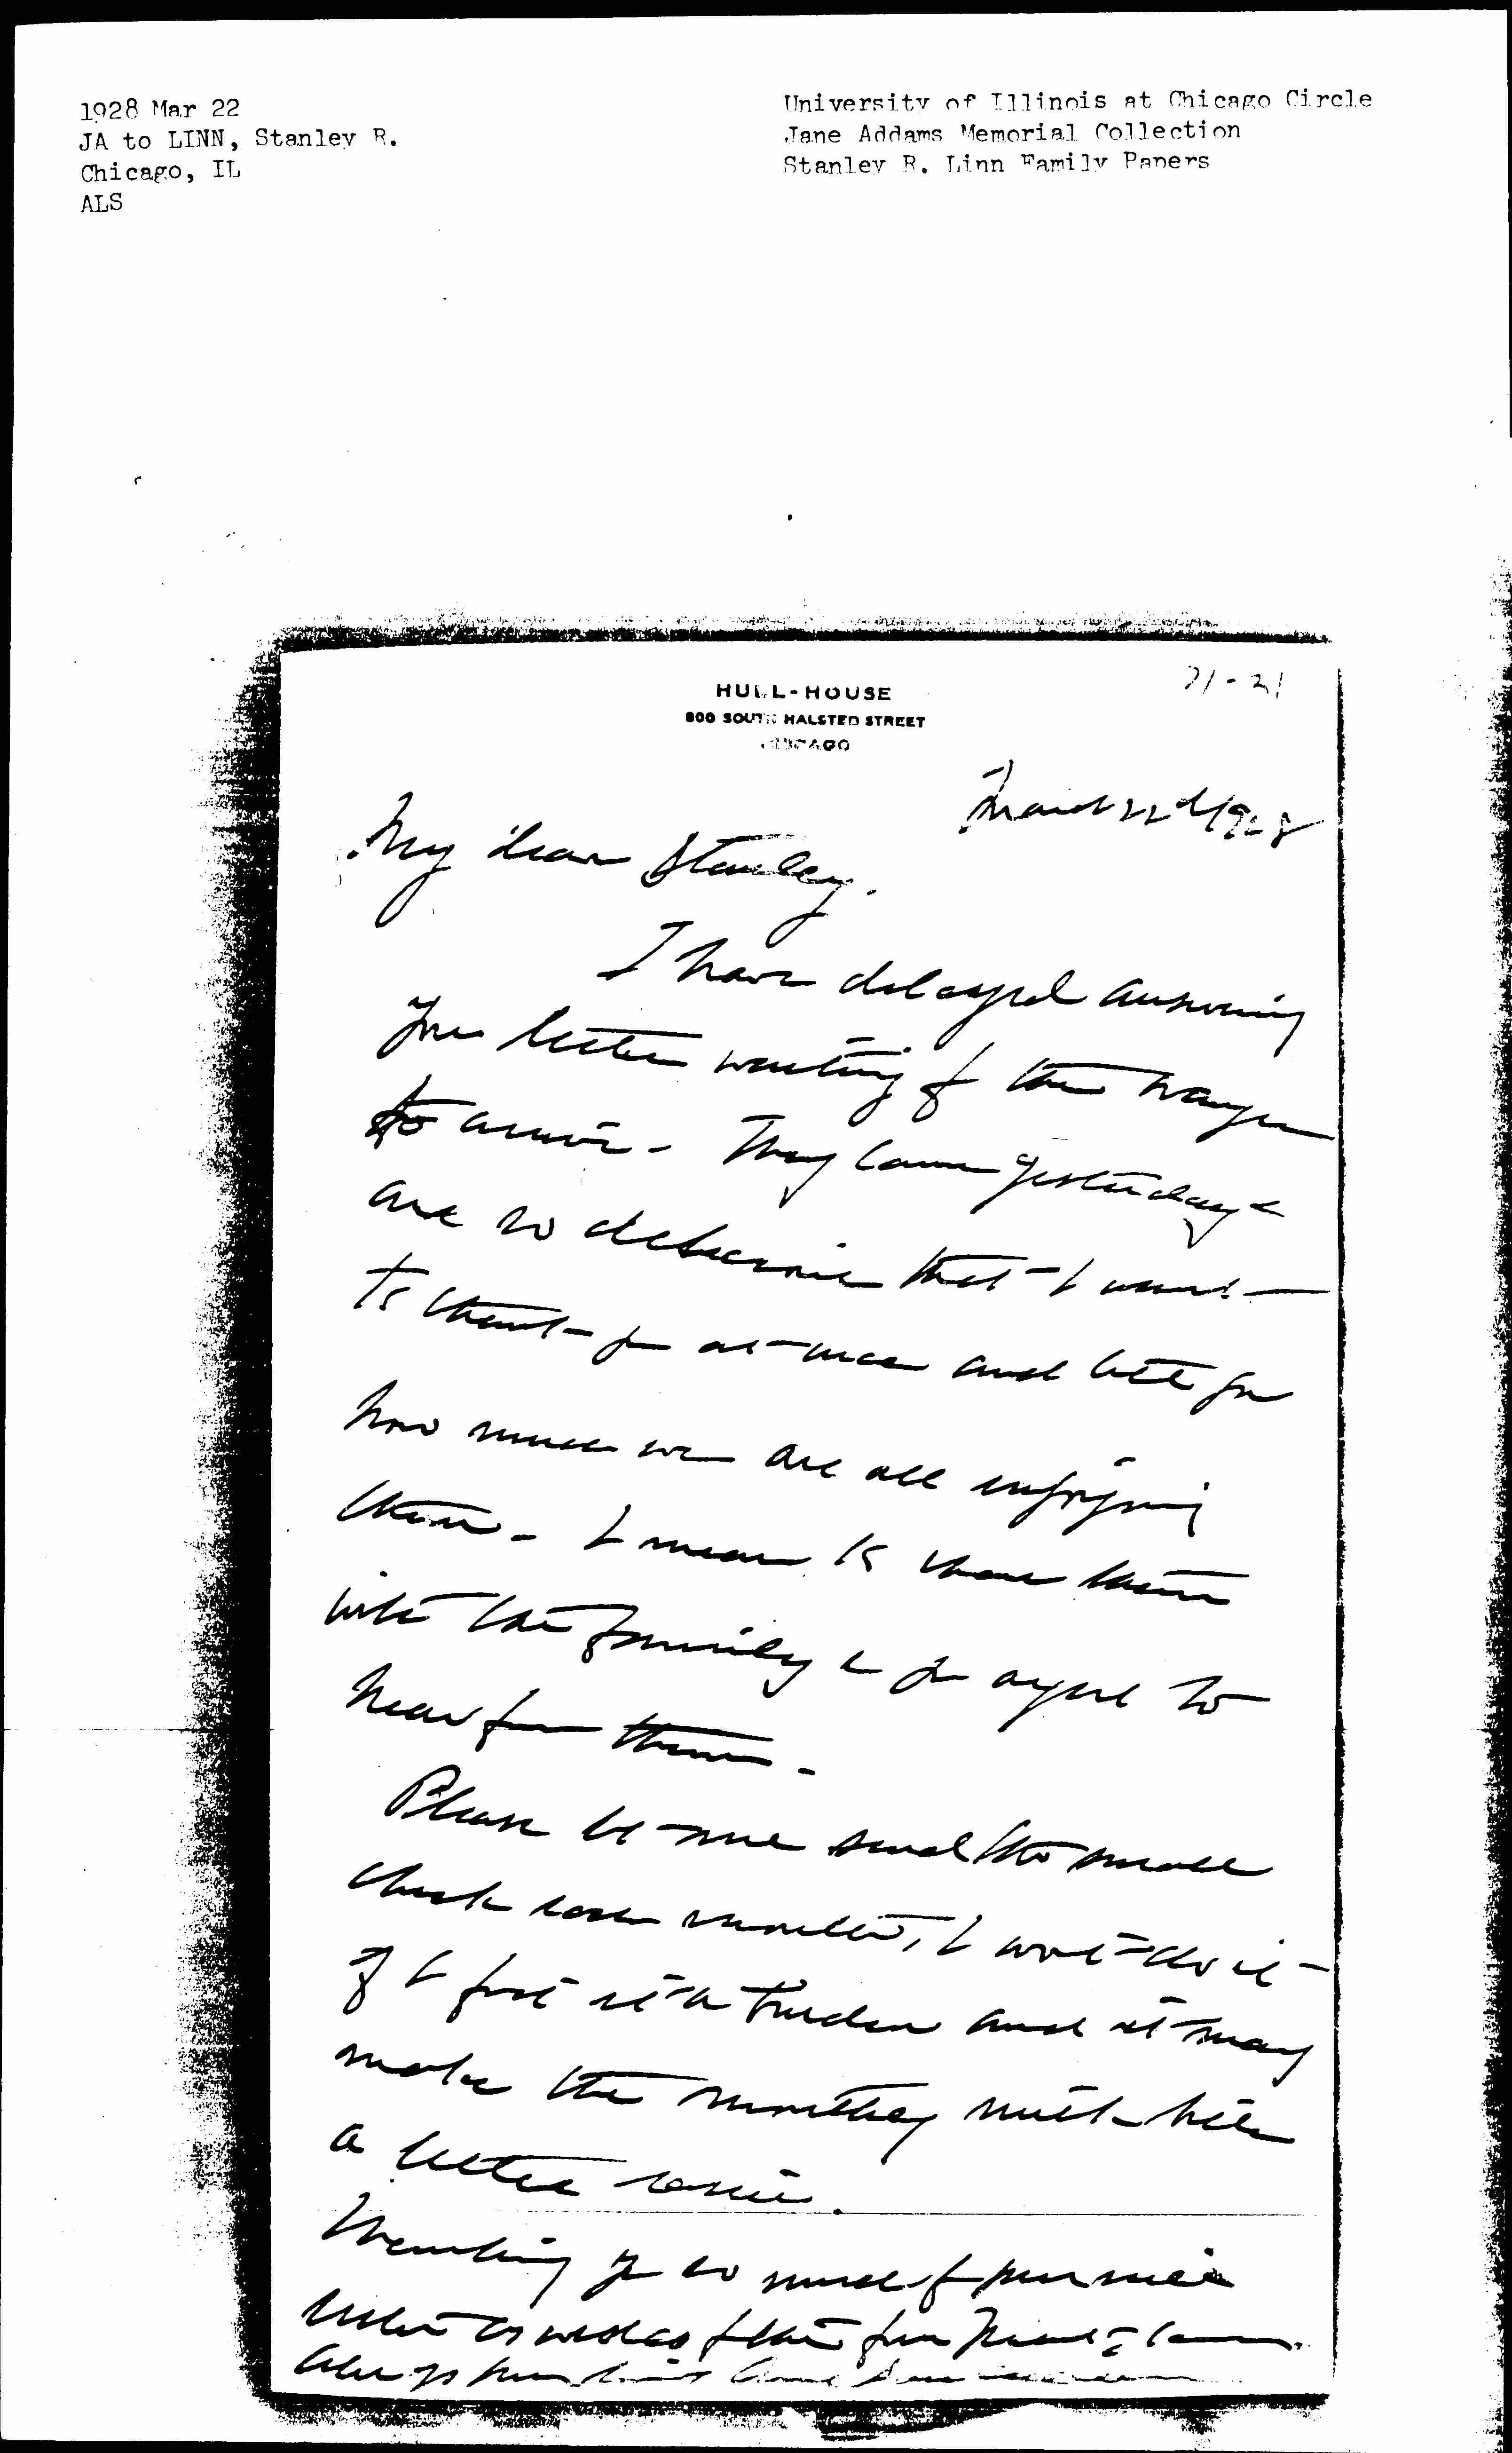 1928 Mar 22
JA to LINN, Stanley R.
Chicago, IL
ALS
University of Illinois at Chicago Circle
Jane Addams Memorial Collection
Stanley R. Linn Family Papers
HULL-HOUSE
800 SOUTH HALSTED STREET
CHICAGO
March 22d 1928
My dear Stanley.
I have delayed answering
your letter waiting for the
to arrive - They came yesterday &
are so delicious that I want
to thank you at once and tell you
how much we are all enjoying
them - I mean to share them
with the family & you agree to
hear from them -
Please let me send the small
check each month, I won't do it
if I find it a burden and it may
make the monthly milk bill
a little easier.
Thanking you so much for your nice
letter as well as for the fine
Always your